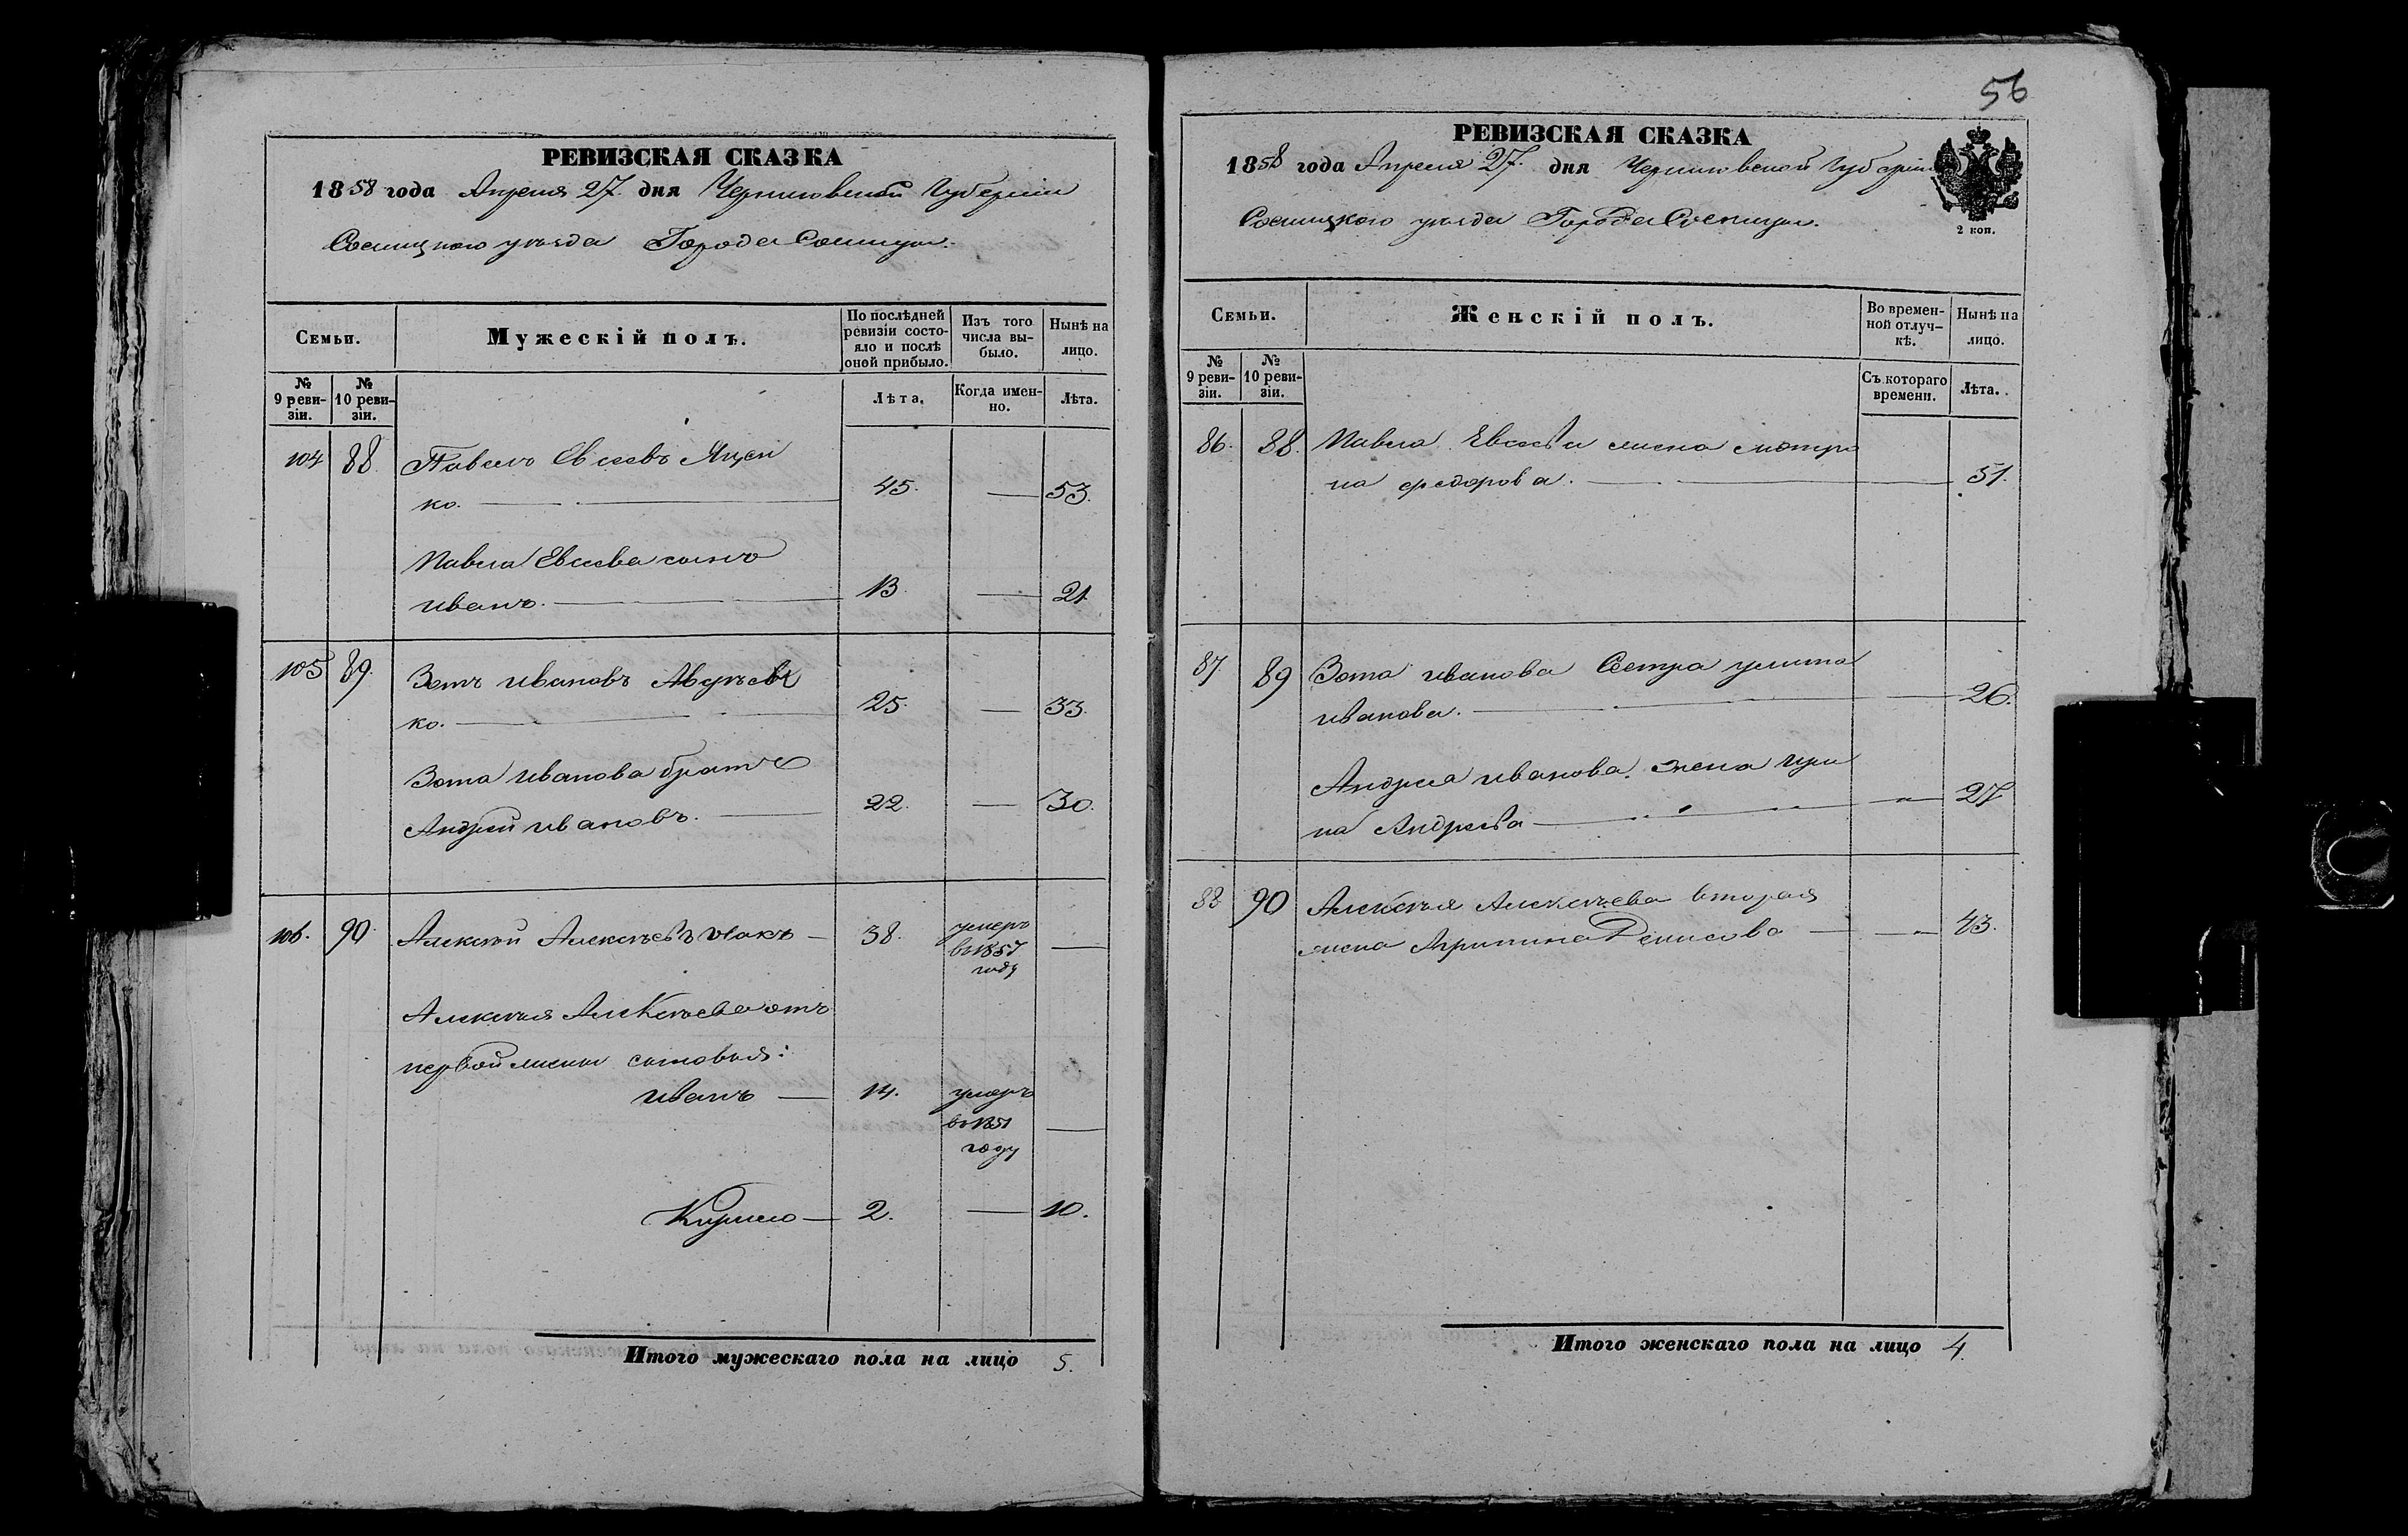 56
РЕВИЗСКАЯ СКАЗКА
1858 года Апреля 27. дня Черниговской Губерніи
Сосницкого уѣзда Города Сосницы.
Семьи.
Мужескій полъ.
По послѣдней ревизіи состо-
яло и послѣ оной прибыло.
Изъ того числа вы-
было.
Нынѣ на лицо.
№ 9 реви-
зіи.
№ 10 реви-
зіи.
Лѣта.
Когда имен-
но.
Лѣта.
104 88 Павелъ Евсеевъ Яцен
ко. 45. — 53.
Павла Евсеева сынъ
Иванъ. 13 — 21.
105 89. Зотъ Ивановъ
ко. 25. — 33.
Зота Иванова братъ
Андрей Ивановъ. 22. — 30.
106. 90. Алексѣй Алексѣевъ — 38. умеръ
въ 1857
году —
Алексѣя Алексѣева отъ
первой жены сыновья:
Иванъ — 14. умеръ
въ 1851
году —
Кирило — 2. — 10.
Итого мужескаго пола на лицо 5.
РЕВИЗСКАЯ СКАЗКА
1858 года Апреля 27. дня Черниговской Губерніи
Сосницкого уѣзда Города Сосницы.
2 коп.
Семьи.
Женскій полъ.
Во времен-
ной отлуч-
кѣ.
Нынѣ на лицо.
№ 9 реви-
зіи.
№ 10 реви-
зіи.
Съ котораго времени.
Лѣта.
86. 88. Павла Евсѣева жена Мотро
на Федорова. — 51.
87. 89 Зота Иванова Сестра Улита
Иванова. — 26.
Андрея Иванова жена Ири
на Андреева — 27
88 90 Алексѣя Алексѣева вторая
жена Агрипина Денисова — 43.
Итого женскаго пола на лицо 4.